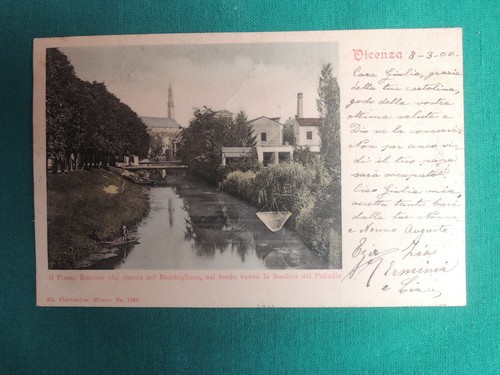 Vicenza 8-3-00
Cara Giulia, grazie
della tua cartolina,
godo della vostra
ottima salute e
Dio ve la conservi
Non per anco vi
di il tuo papà
sarà occupato
Ciao Giulia mia,
accetta tanti baci
dalla tua Nonna
e Nonno Augusto
Zia
Erminia
Il Fiume Retrone che sbocca nel Bacchiglione, nel fondo vedesi la Basilica del Palladio
Ed. Tierbücher, Milano. No. 1260